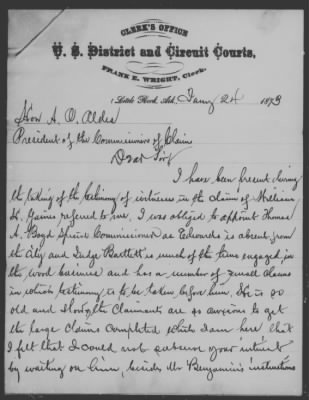 CLERK'S OFFICE
U. S. District and Circuit Courts,
FRANK E. WRIGHT, Clerk.
Little Rock, Ark, Jany 24 1873
Hon A. O. Aldis
President of the Commissioners of Claims
Dear Sir,
I have been present during
the taking of the testimony of witnesses in the claim of
W. Gaines referred to me. I was obliged to appoint Thomas
A. Boyd Special Commissioner as Edwards is absent from
the City and Judge Bartlett is much of the time engaged in
the wood business and has a number of small claims
in which testimony is to be taken before him. He is so
old and slow, the Claimants are so anxious to get
the large claims completed while I am here that
I felt that I could not subserve your interest
by waiting on him, besides Mr Benjamin's instructions